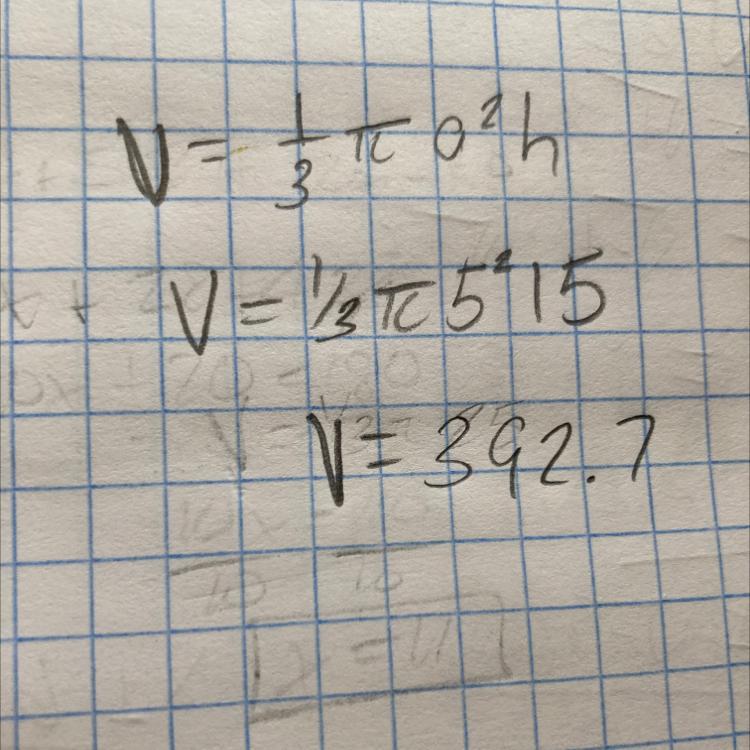 V = 1/3 π o² h
V = 1/3 π 5² 15
V = 392.7